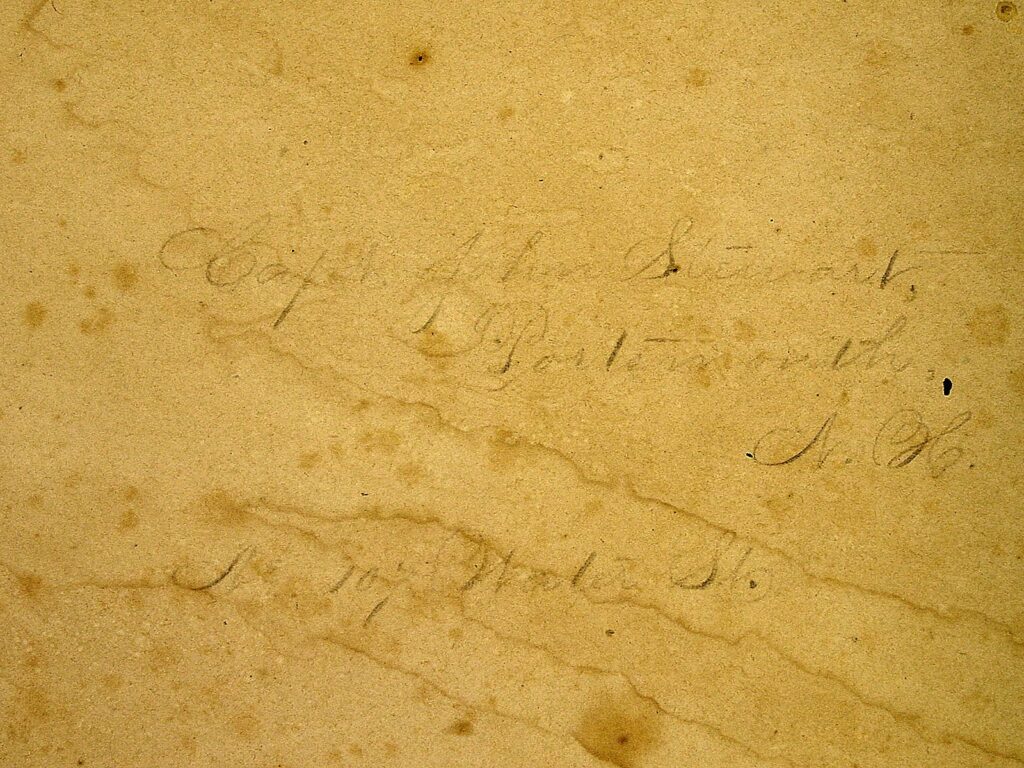 Capt. John Stewart,
Portsmouth,
N. H.
No 107 Water St.